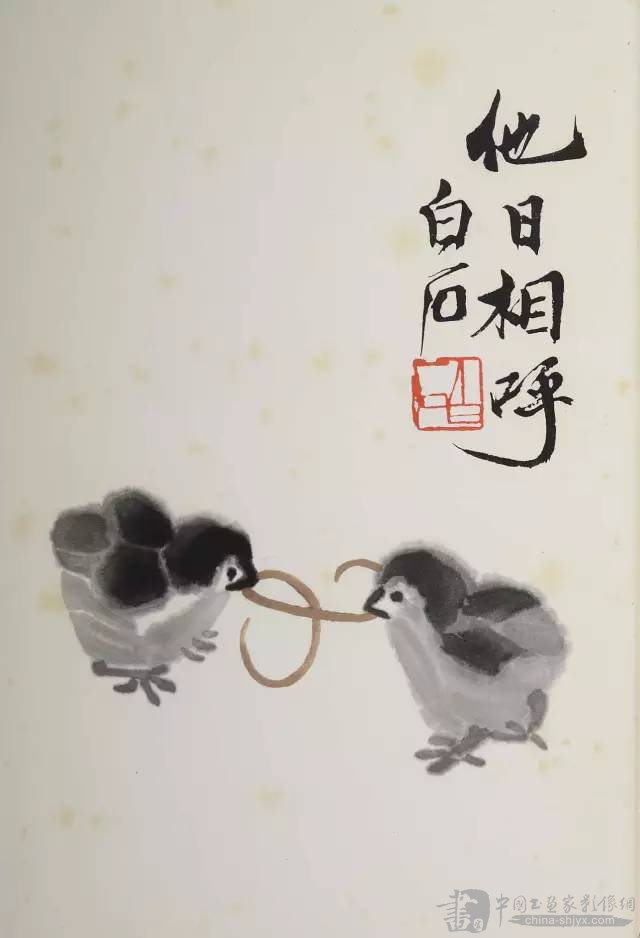 他日相呼
白石
書
中国书画家影像網
china-shjyx.com